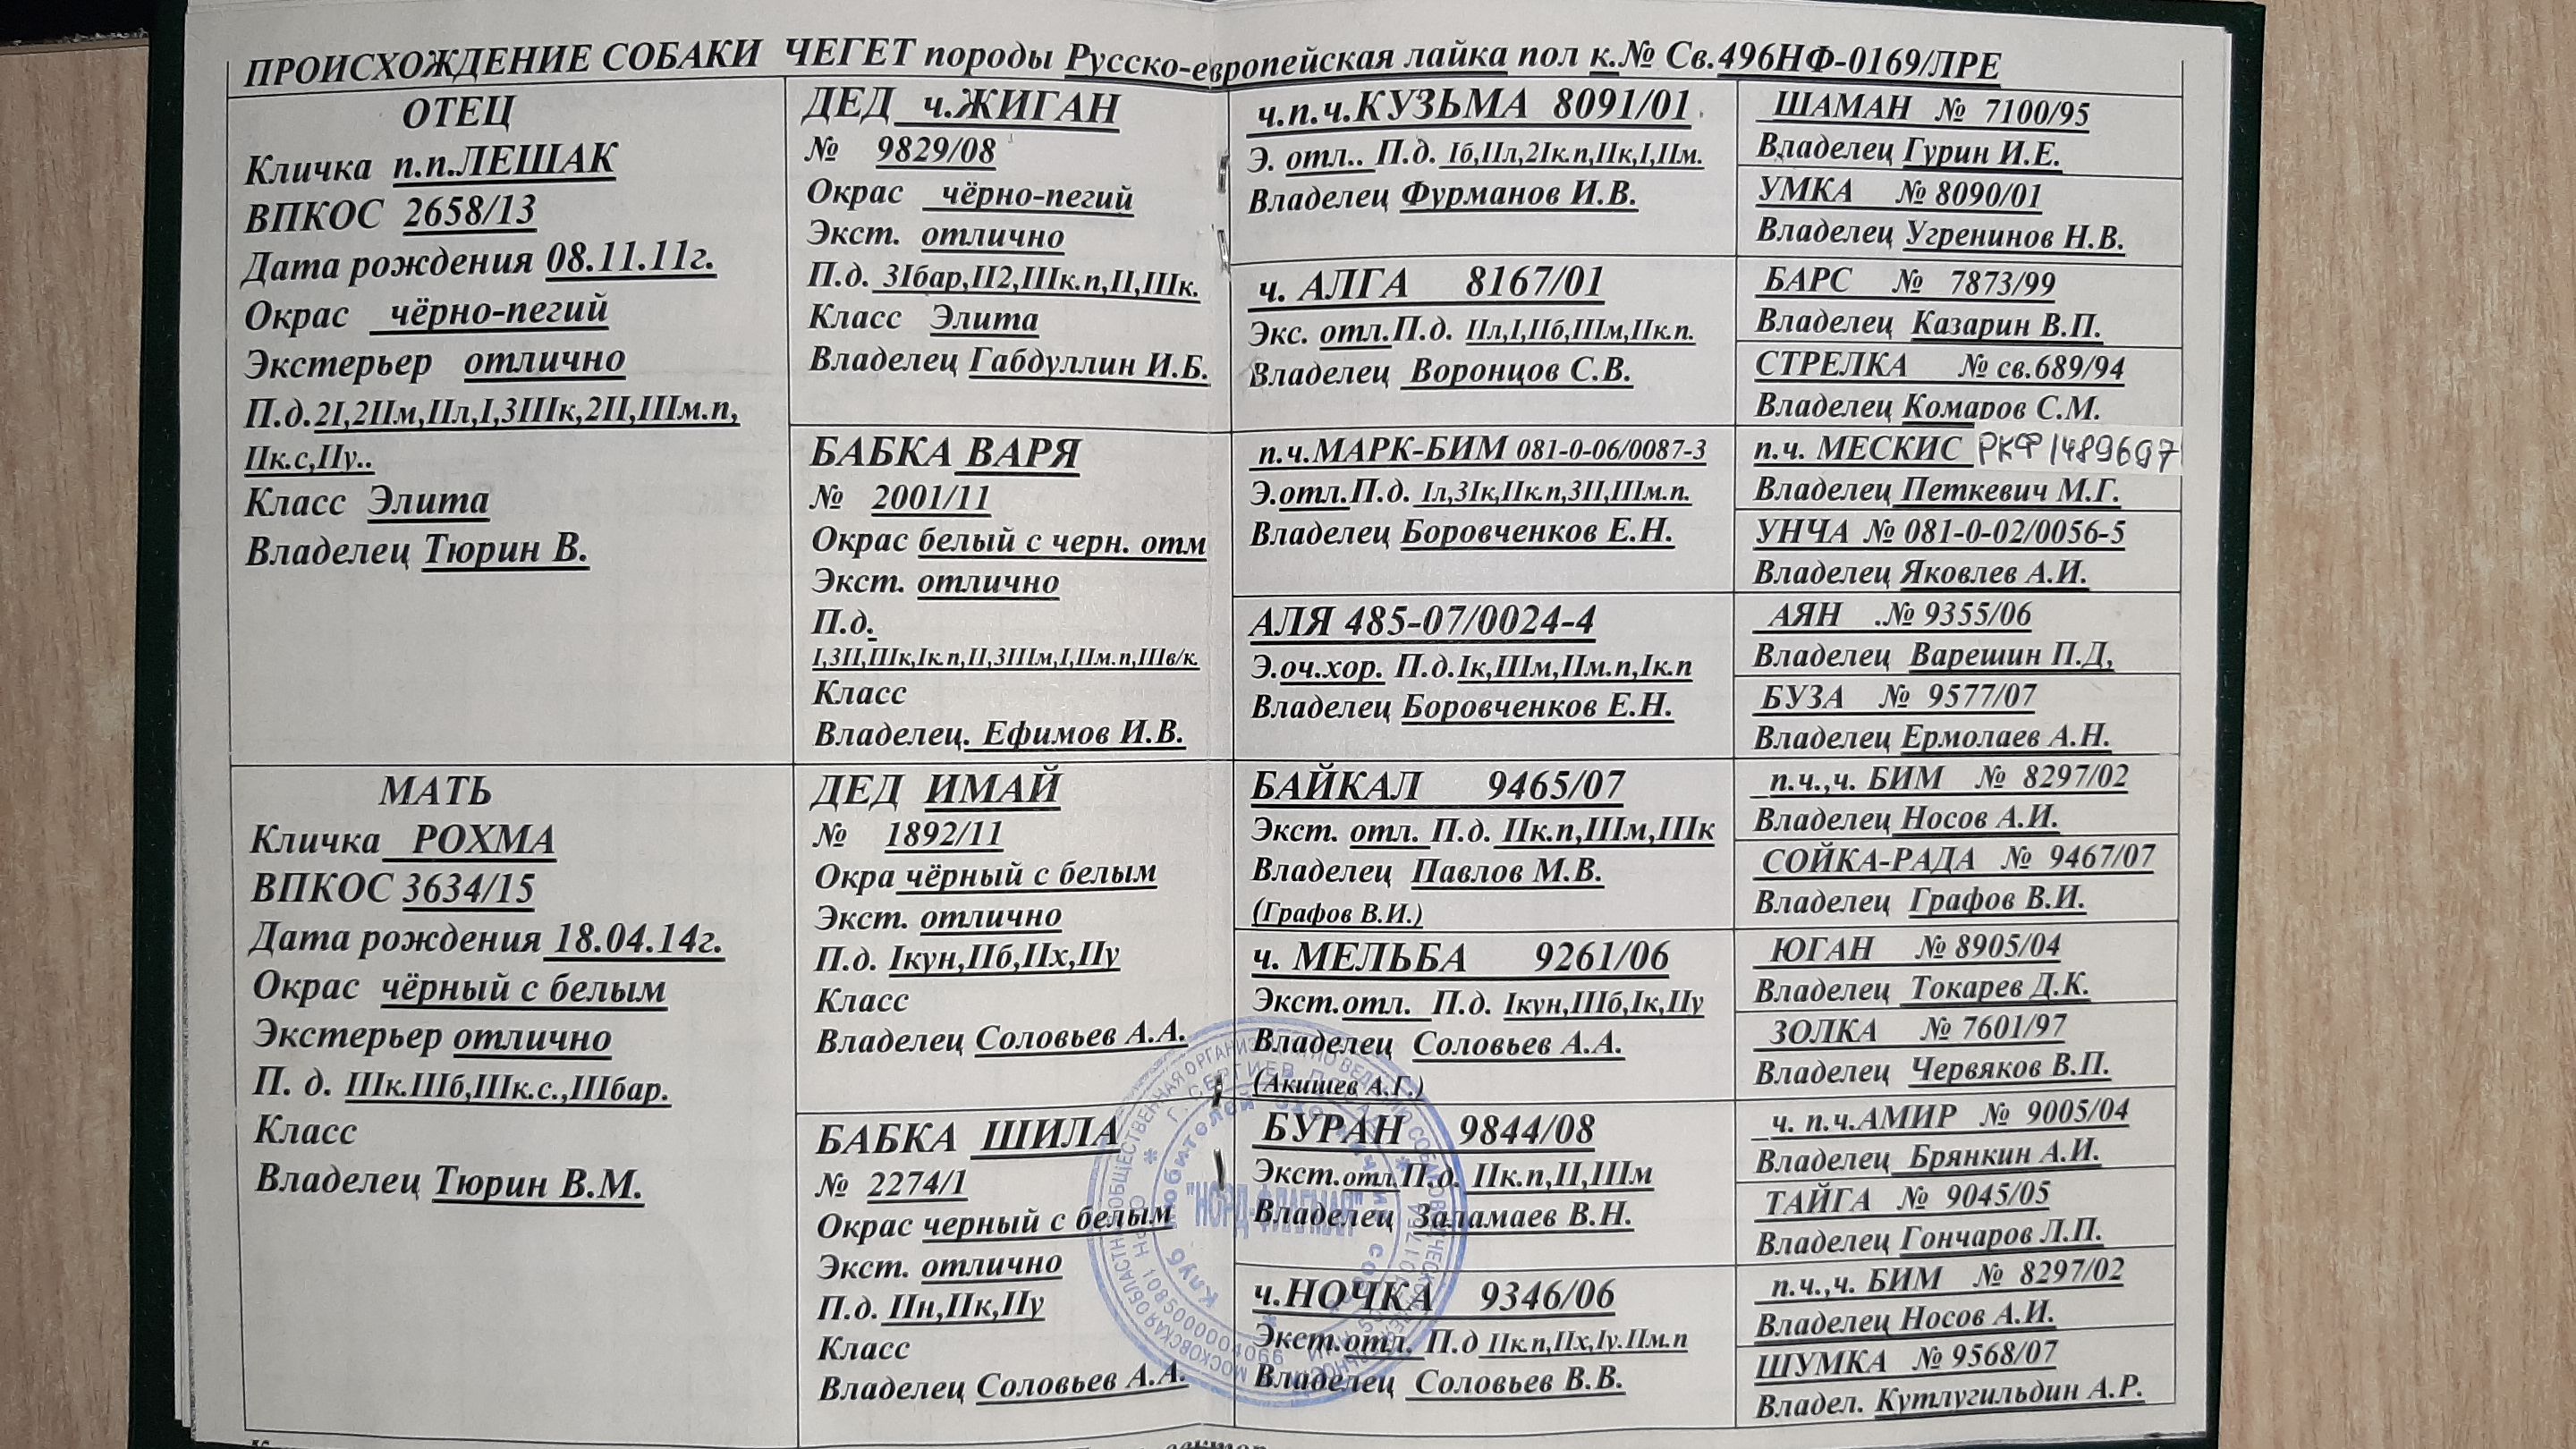 ПРОИСХОЖДЕНИЕ СОБАКИ ЧЕГЕТ породы Русско-европейская лайка пол к.№ Св.496НФ-0169/ЛРЕ
ОТЕЦ
Кличка п.п.ЛЕШАК
ВПКОС 2658/13
Дата рождения 08.11.11г.
Окрас чёрно-пегий
Экстерьер отлично
П.д.2I,2IIм,IIл,I,3IIIк,2II,IIIм.п,
IIк.с,IIу..
Класс Элита
Владелец Тюрин В.
МАТЬ
Кличка РОХМА
ВПКОС 3634/15
Дата рождения 18.04.14г.
Окрас чёрный с белым
Экстерьер отлично
П. д. IIIк.IIIб,IIIк.с.,IIIбар.
Класс
Владелец Тюрин В.М.
ДЕД ч.ЖИГАН
№ 9829/08
Окрас чёрно-пегий
Экст. отлично
П.д. 3Iбар,II2,IIIк.п,II,IIIк.
Класс Элита
Владелец Габдуллин И.Б.
БАБКА ВАРЯ
№ 2001/11
Окрас белый с черн. отм
Экст. отлично
П.д.
I,3II,IIIк,Iк.п,II,3IIIм,I,IIм.п,IIIв/к.
Класс
Владелец. Ефимов И.В.
ДЕД ИМАЙ
№ 1892/11
Окра чёрный с белым
Экст. отлично
П.д. Iкун,IIб,IIх,IIу
Класс
Владелец Соловьев А.А.
БАБКА ШИЛА
№ 2274/1
Окрас черный с белым
Экст. отлично
П.д. IIн,IIк,IIу
Класс
Владелец Соловьев А.А.
ч.п.ч.КУЗЬМА 8091/01
Э. отл.. П.д. Iб,IIл,2Iк.п,IIк,I,IIм.
Владелец Фурманов И.В.
ч. АЛГА 8167/01
Экс. отл.П.д. IIл,I,IIб,IIIм,IIк.п.
Владелец Воронцов С.В.
п.ч.МАРК-БИМ 081-0-06/0087-3
Э.отл.П.д. Iл,3Iк,IIк.п,3II,IIIм.п.
Владелец Боровченков Е.Н.
АЛЯ 485-07/0024-4
Э.оч.хор. П.д.Iк,IIIм,IIм.п,Iк.п
Владелец Боровченков Е.Н.
БАЙКАЛ 9465/07
Экст. отл. П.д. IIк.п,IIIм,IIIк
Владелец Павлов М.В.
(Графов В.И.)
ч. МЕЛЬБА 9261/06
Экст.отл. П.д. Iкун,IIIб,Iк,IIу
Владелец Соловьев А.А.
(Акишев А.Г.)
БУРАН 9844/08
Экст.отл.П.д. IIк.п,II,IIIм
Владелец Заламаев В.Н.
ч.НОЧКА 9346/06
Экст.отл. П.д IIк.п,IIх,Iу.IIм.п
Владелец Соловьев В.В.
ШАМАН № 7100/95
Владелец Гурин И.Е.
УМКА № 8090/01
Владелец Угренинов Н.В.
БАРС № 7873/99
Владелец Казарин В.П.
СТРЕЛКА № св.689/94
Владелец Комаров С.М.
п.ч. МЕСКИС РКФ 1489697
Владелец Петкевич М.Г.
УНЧА № 081-0-02/0056-5
Владелец Яковлев А.И.
АЯН .№ 9355/06
Владелец Варешин П.Д,
БУЗА № 9577/07
Владелец Ермолаев А.Н.
п.ч.,ч. БИМ № 8297/02
Владелец Носов А.И.
СОЙКА-РАДА № 9467/07
Владелец Графов В.И.
ЮГАН № 8905/04
Владелец Токарев Д.К.
ЗОЛКА № 7601/97
Владелец Червяков В.П.
ч. п.ч.АМИР № 9005/04
Владелец Брянкин А.И.
ТАЙГА № 9045/05
Владелец Гончаров Л.П.
п.ч.,ч. БИМ № 8297/02
Владелец Носов А.И.
ШУМКА № 9568/07
Владел. Кутлугильдин А.Р.
Клуб любителей